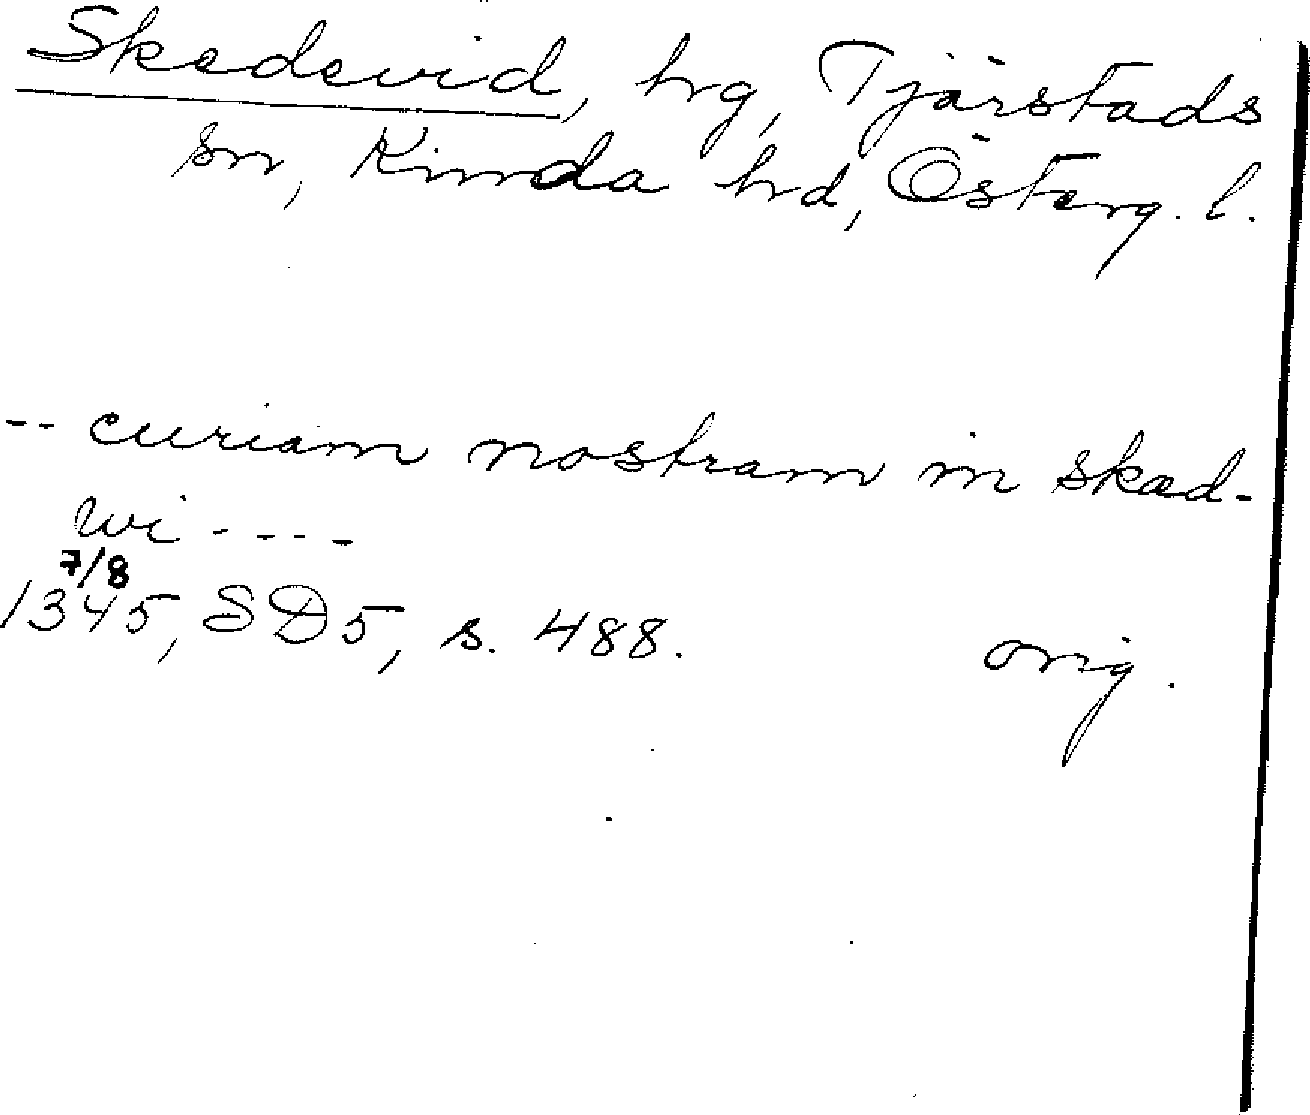 Skedevid, hrg, Tjärstads
sn, Kinda hd, Österg. l.
-- curiam nostram in skæd-
wi ----
7/8
1345, SD5, s. 488. orig.